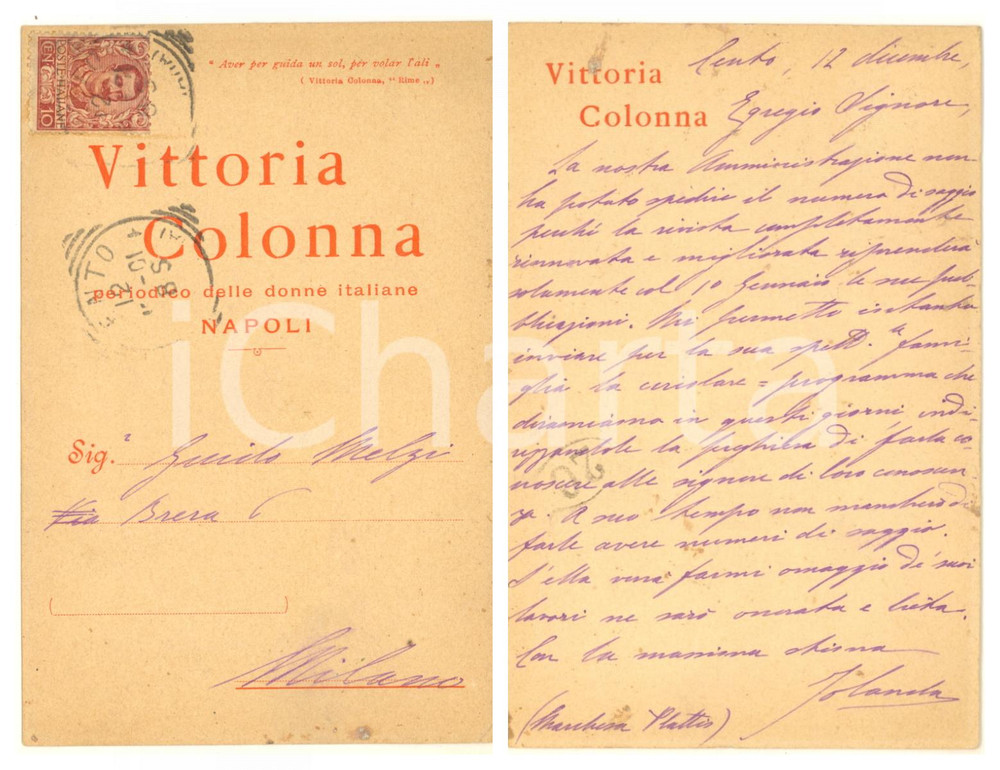 POSTE ITALIANE
CENT. 10
" Aver per guida un sol, per volar l'ali „
( Vittoria Colonna, " Rime „)
Vittoria
Colonna
periodico delle donne italiane
NAPOLI
Sig. Guido Melzi
Via Brera 6
Milano
iCharta
Vittoria
Colonna
Cento, 12 dicembre,
Egregio Signore,
La nostra Amministrazione non
ha potuto spedire il numero di saggio
perchè la rivista completamente
rinnovata e migliorata riprenderà
solamente col 10 Gennaio le sue pub-
blicazioni. Mi permetto intanto
inviare per la sua spett.a fami-
glia la circolare = programma che
diramiamo in questi giorni indi-
rizzandole la preghiera di farla co-
noscere alle signore di loro conoscen-
za. A suo tempo non mancherò di
farle avere numeri di saggio.
S'ella vorrà farmi omaggio de' suoi
lavori ne sarò onorata e lieta.
Con la massima stima
Jolanda
(Marchesa Plattis)